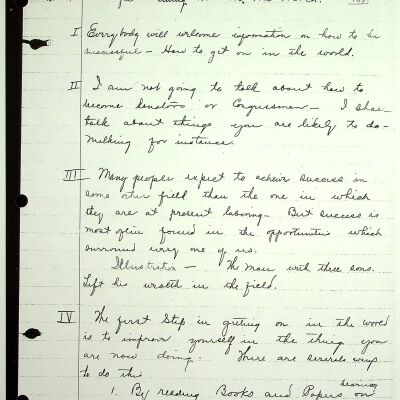 I Everybody will welcome information on how to be
successful - How to get on in the world.
II I am not going to talk about how to
become Senators or Congressmen - I shall
talk about things you are likely to do -
Milking for instance.
III Many people expect to achieve success in
some other field than the one in which
they are at present laboring - But success is
most often found in the opportunities which
surround every one of us.
Illustration - The man with three sons.
Left his wealth in the field.
IV The first Step in getting on in the world
is to improve yourself in the thing you
are now doing. There are several ways
to do this
bearing
1. By reading Books and Papers on